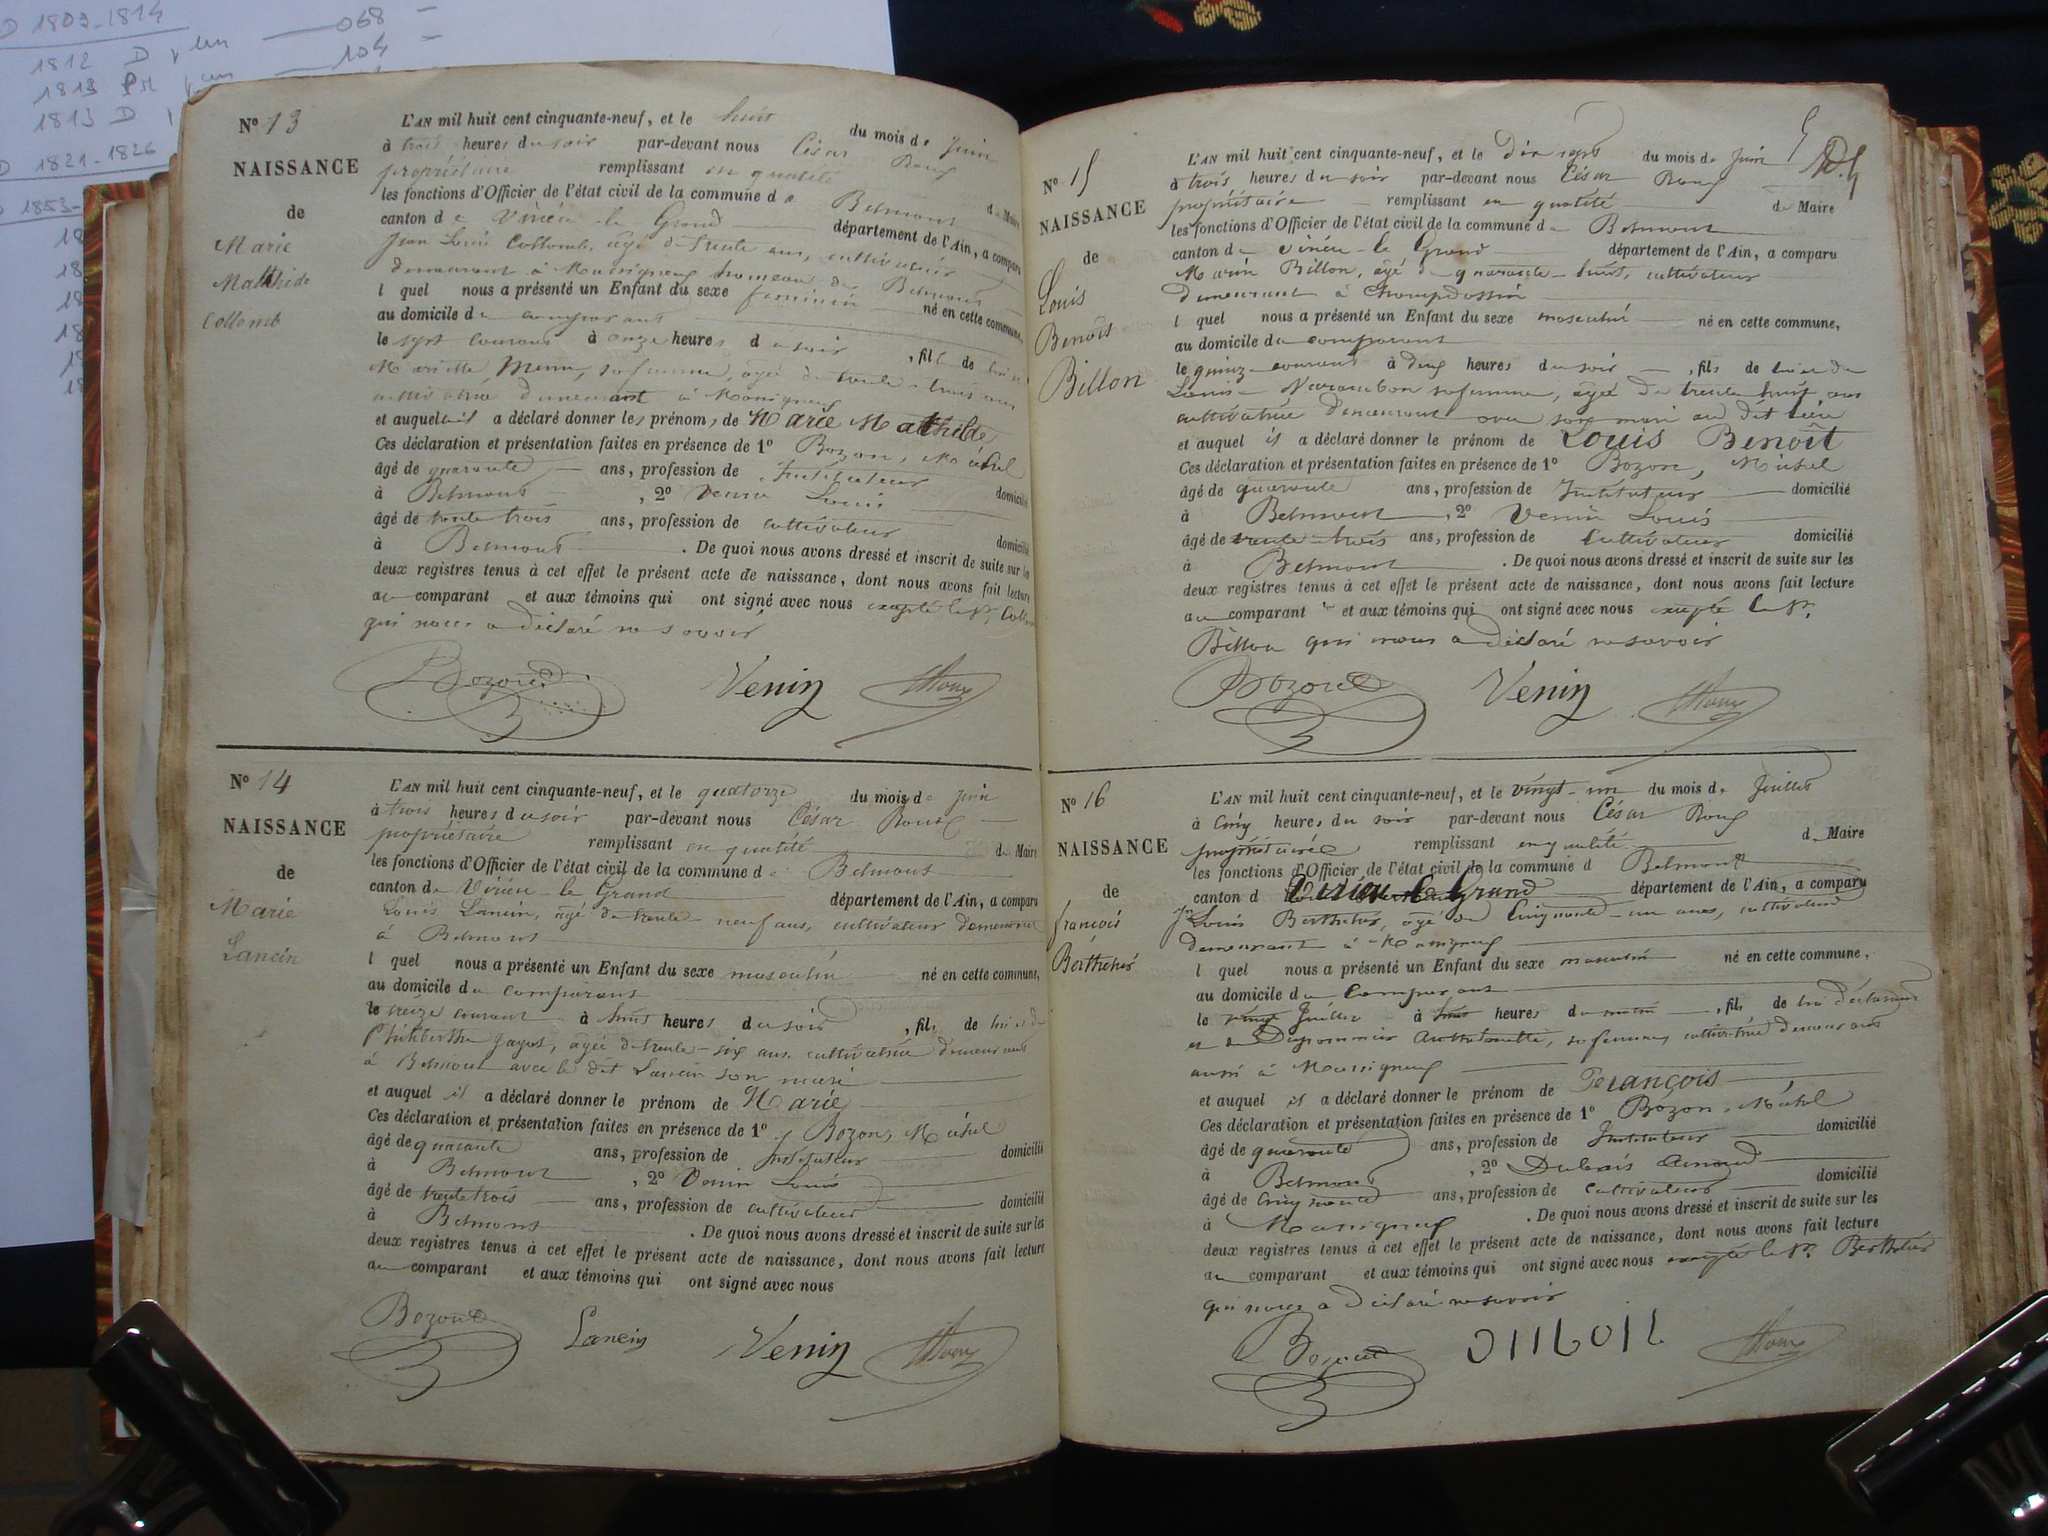 D 1803-1814
1812 D
068
1813
104
1813 D
D 1821-1826
1853-
18
18
18
18
18
18
N° 13
NAISSANCE
de
Marie
Mathilde
Collomb
L'AN mil huit cent cinquante-neuf, et le huit du mois de Juin
à trois heures du soir par-devant nous César Roux
propriétaire remplissant en qualité de Maire
les fonctions d'Officier de l'état civil de la commune de Belmont
canton de Virieu-le-Grand département de l'Ain, a comparu
Jean Louis Collomb, âgé de trente ans, cultivateur
demeurant à Massigneux hameau de Belmont
lequel nous a présenté un Enfant du sexe féminin né en cette commune,
au domicile du comparant
le sept courant à onze heures du soir, fille de lui et
Mariette Venin, sa femme, agée de trente-trois ans
cultivatrice demeurant à Massigneux
et auquel il a déclaré donner les prénoms de Marie Mathilde
Ces déclaration et présentation faites en présence de 1° Bozon, Michel
âgé de quarante ans, profession de Instituteur domicilié
à Belmont, 2° Venin Louis
âgé de trente trois ans, profession de cultivateur domicilié
à Belmont. De quoi nous avons dressé et inscrit de suite sur les
deux registres tenus à cet effet le présent acte de naissance, dont nous avons fait lecture
au comparant et aux témoins qui ont signé avec nous excepté le Sr. Collomb
qui nous a déclaré ne savoir
Bozon Venin Roux
N° 14
NAISSANCE
de
Marie
Lancin
L'AN mil huit cent cinquante-neuf, et le quatorze du mois de Juin
à trois heures du soir par-devant nous César Roux
propriétaire remplissant en qualité de Maire
les fonctions d'Officier de l'état civil de la commune de Belmont
canton de Virieu-le-Grand département de l'Ain, a comparu
Louis Lancin, âgé de trente-neuf ans, cultivateur demeurant
à Belmont
lequel nous a présenté un Enfant du sexe masculin né en cette commune,
au domicile du comparant
le treize courant à huit heures du soir, fils de lui et de
Philiberthe Jayet, agée de trente-six ans cultivatrice demeurant
à Belmont avec le dit Lancin son mari
et auquel il a déclaré donner le prénom de Marie
Ces déclaration et présentation faites en présence de 1° Bozon, Michel
âgé de quarante ans, profession de Instituteur domicilié
à Belmont, 2° Venin Louis
âgé de trente trois ans, profession de cultivateur domicilié
à Belmont. De quoi nous avons dressé et inscrit de suite sur les
deux registres tenus à cet effet le présent acte de naissance, dont nous avons fait lecture
au comparant et aux témoins qui ont signé avec nous
Bozon Lancin Venin Roux
N° 15
NAISSANCE
de
Louis
Benoit
Billon
L'AN mil huit cent cinquante-neuf, et le dix sept du mois de Juin
à trois heures du soir par-devant nous César Roux
propriétaire remplissant en qualité de Maire
les fonctions d'Officier de l'état civil de la commune de Belmont
canton de Virieu-le-Grand département de l'Ain, a comparu
Marin Billon, âgé de quarante-huit, cultivateur
demeurant à Champdossin
lequel nous a présenté un Enfant du sexe masculin né en cette commune,
au domicile du comparant
le quinze courant à deux heures du soir, fils de lui et de
Louise sa femme, agée de trente huit ans
cultivatrice demeurant avec son mari au dit lieu
et auquel il a déclaré donner le prénom de Louis Benoît
Ces déclaration et présentation faites en présence de 1° Bozon, Michel
âgé de quarante ans, profession de Instituteur domicilié
à Belmont, 2° Venin Louis
âgé de trente-trois ans, profession de cultivateur domicilié
à Belmont. De quoi nous avons dressé et inscrit de suite sur les
deux registres tenus à cet effet le présent acte de naissance, dont nous avons fait lecture
au comparant et aux témoins qui ont signé avec nous excepté le Sr.
Billon qui nous a déclaré ne savoir
Bozon Venin Roux
N° 16
NAISSANCE
de
François
Berthelier
L'AN mil huit cent cinquante-neuf, et le vingt-un du mois de Juillet
à cinq heures du soir par-devant nous César Roux
propriétaire remplissant en qualité de Maire
les fonctions d'Officier de l'état civil de la commune d Belmont
canton d Virieu-le-Grand département de l'Ain, a comparu
Jn Louis Berthelier, âgé de cinquante-un ans, cultivateur
demeurant à Massigneux
lequel nous a présenté un Enfant du sexe masculin né en cette commune,
au domicile du comparant
le vingt Juillet à huit heures du matin, fils de lui déclarant
et de Anthelmette, sa femme, cultivatrice demeurant
aussi à Massigneux
et auquel il a déclaré donner le prénom de François
Ces déclaration et présentation faites en présence de 1° Bozon, Michel
âgé de quarante ans, profession de Instituteur domicilié
à Belmont, 2°
âgé de cinquante ans, profession de cultivateur domicilié
à Massigneux. De quoi nous avons dressé et inscrit de suite sur les
deux registres tenus à cet effet le présent acte de naissance, dont nous avons fait lecture
au comparant et aux témoins qui ont signé avec nous excepté le Sr. Berthelier
qui nous a déclaré ne savoir
Bozon Roux